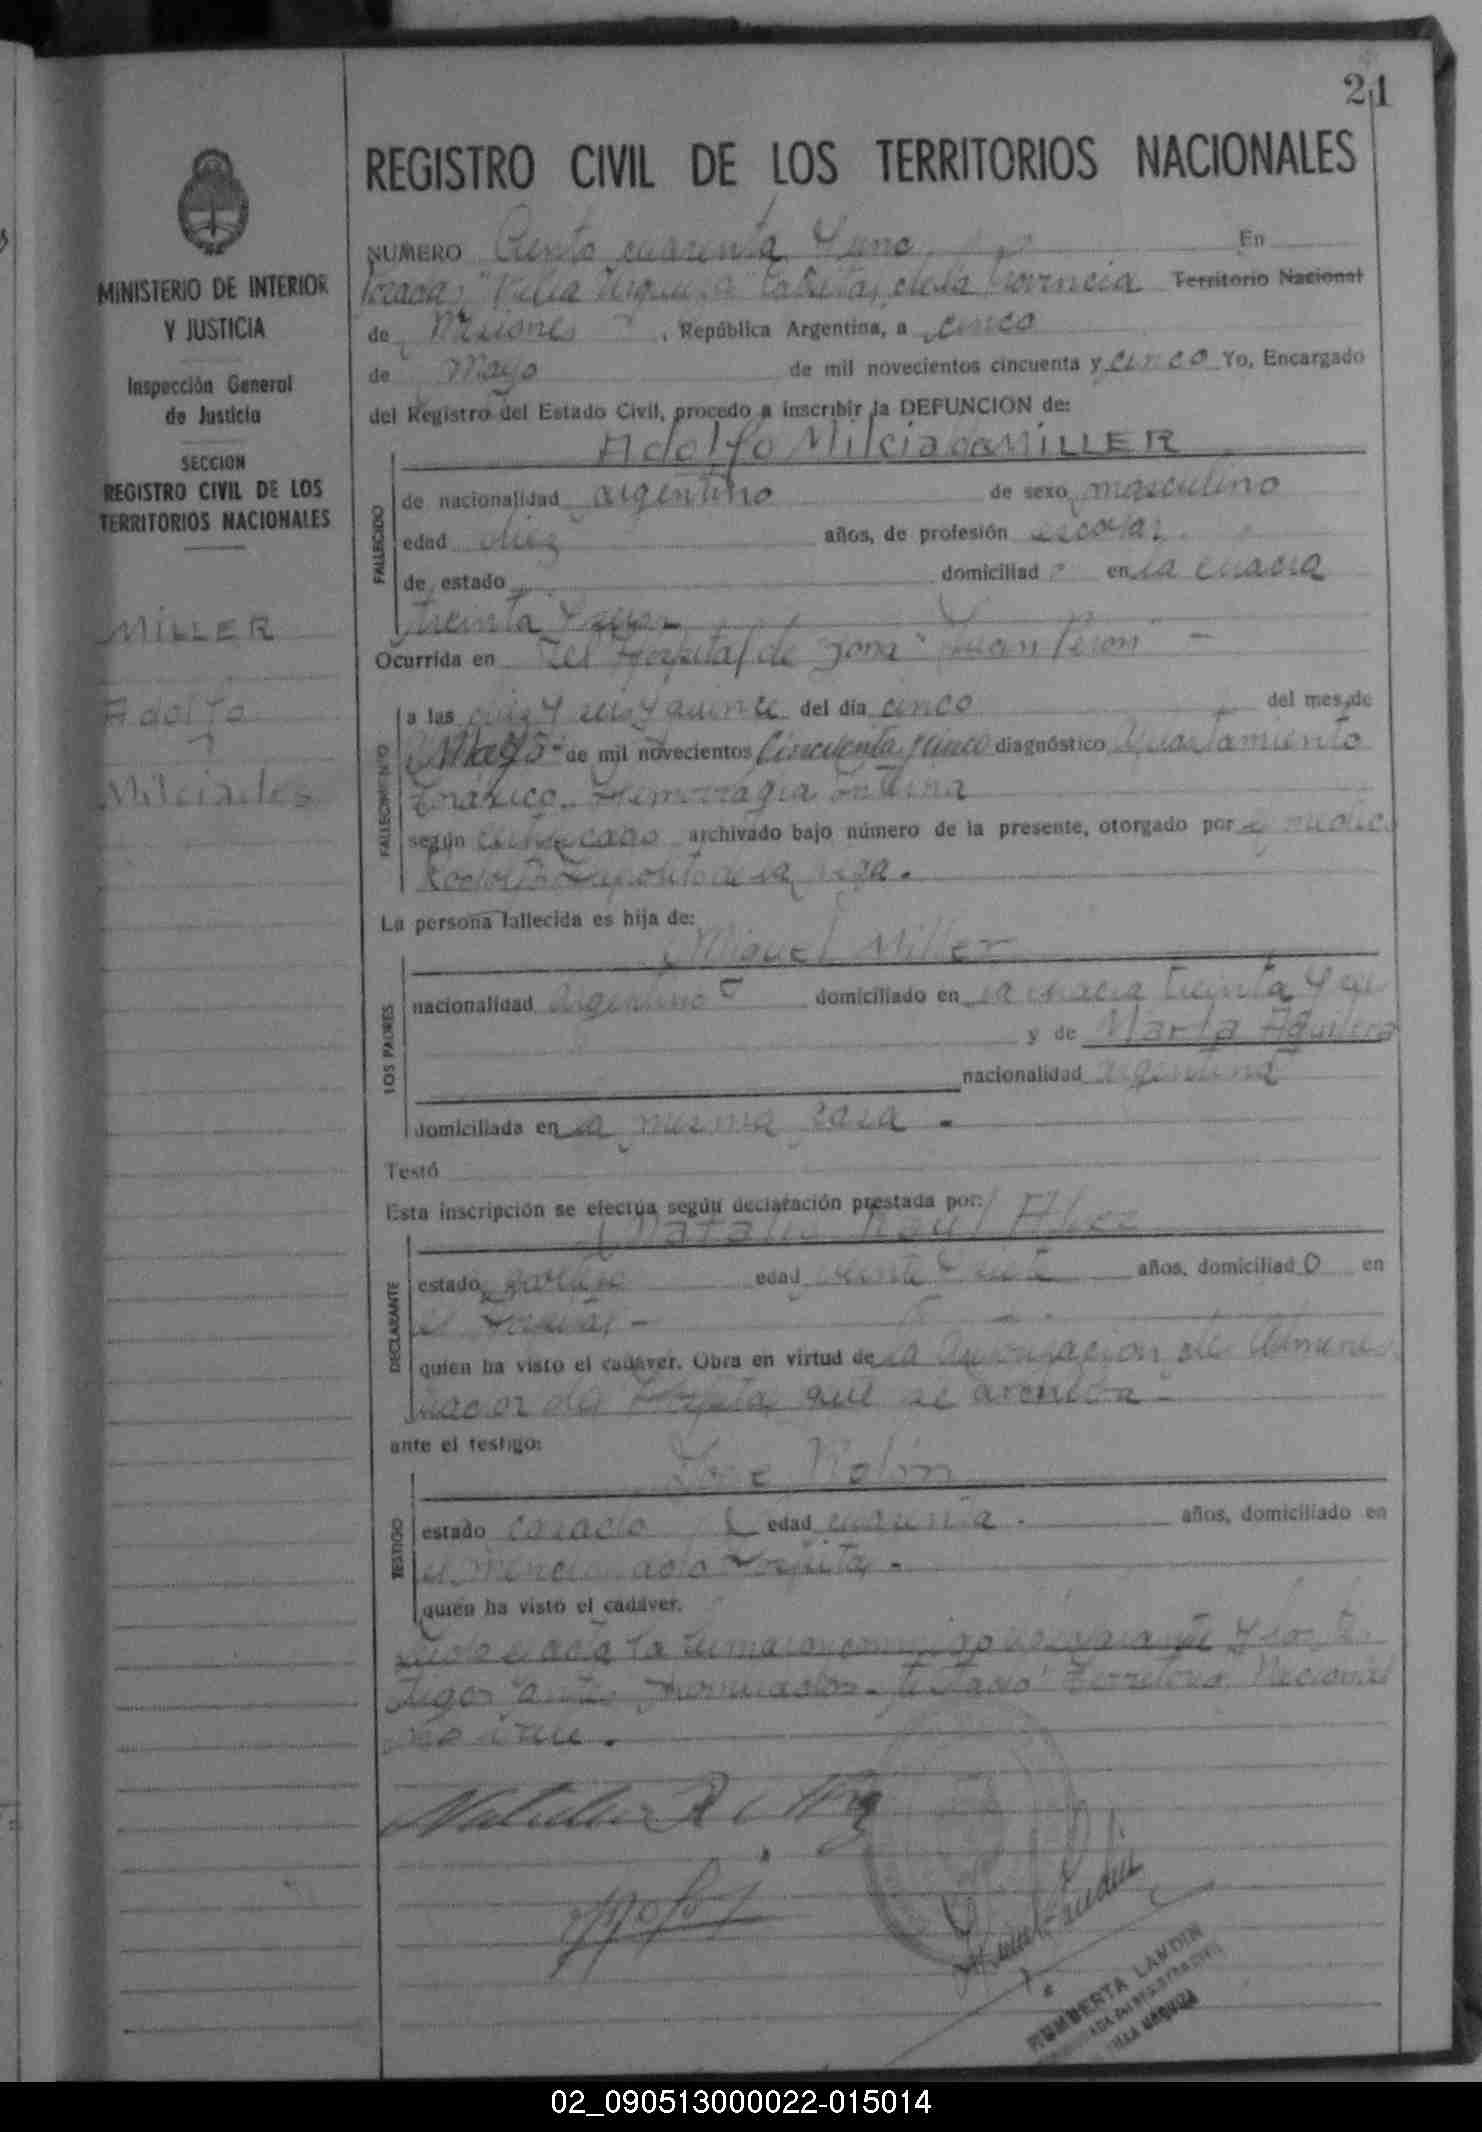 21
REGISTRO CIVIL DE LOS TERRITORIOS NACIONALES
MINISTERIO DE INTERIOR
Y JUSTICIA
Inspección General
de Justicia
SECCION
REGISTRO CIVIL DE LOS
TERRITORIOS NACIONALES
MILLER
Adolfo
Milciades
NUMERO Ciento cuarenta y uno En
Posadas "Villa Urquiza" Capital de la Provincia Territorio Nacional
de Misiones, República Argentina, a cinco
de Mayo de mil novecientos cincuenta y cinco Yo, Encargado
del Registro del Estado Civil, procedo a inscribir la DEFUNCION de:
Adolfo Milciades MILLER
FALLECIDO
de nacionalidad argentino de sexo masculino
edad diez años, de profesión escolar.
de estado domiciliado en la chacra
treinta y seis
Ocurrida en el Hospital de zona "Juan Perón" -
FALLECIMIENTO
a las diez y seis y quince del día cinco del mes de
Mayo de mil novecientos cincuenta y cinco diagnóstico
Toráxico. Hemorragia Interna
según certificado archivado bajo número de la presente, otorgado por el médico
La persona fallecida es hija de:
Miguel Miller
LOS PADRES
nacionalidad argentino domiciliado en la chacra treinta y seis
y de Marta Aguilera
nacionalidad argentina
domiciliada en la misma casa -
Testó
Esta inscripción se efectúa según declaración prestada por:
Natalio Raul
DECLARANTE
estado soltero edad veinte y siete años, domiciliado en
el Hospital -
quien ha visto el cadáver. Obra en virtud de la autorización del Adminis
trador del Hospital que se archiva -
ante el testigo:
José
TESTIGO
estado casado edad cuarenta. años, domiciliado en
el mencionado Hospital.
quien ha visto el cadáver.
Leída el acta la firmaron conmigo el declarante y los tes
tigos antes nombrados. Testado "Territorio Nacional"
no vale.
HUMBERTA LANDIN
VILLA URQUIZA
02_090513000022-015014